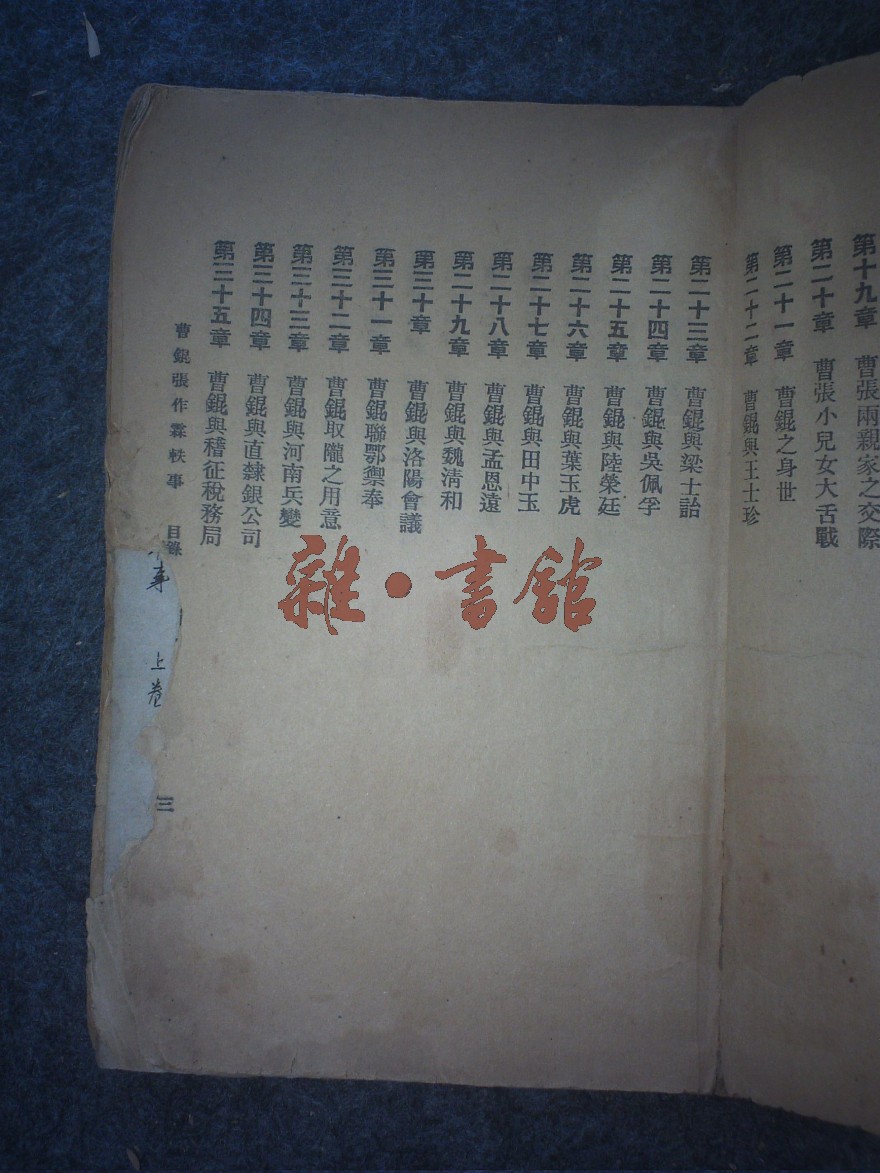 第十九章 曹張兩親家之交際
第二十章 曹張小兒女大舌戰
第二十一章 曹錕之身世
第二十二章 曹錕與王士珍
第二十三章 曹錕與梁士詒
第二十四章 曹錕與吳佩孚
第二十五章 曹錕與陸榮廷
第二十六章 曹錕與葉玉虎
第二十七章 曹錕與田中玉
第二十八章 曹錕與孟恩遠
第二十九章 曹錕與魏清和
第三十章 曹錕與洛陽會議
第三十一章 曹錕聯鄂禦奉
第三十二章 曹錕取隴之用意
第三十三章 曹錕與河南兵變
第三十四章 曹錕與直隸銀公司
第三十五章 曹錕與稽征稅務局
曹錕張作霖軼事 目錄
三
事 上卷
雜·書館